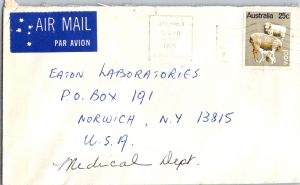 AIR MAIL
PAR AVION
Australia 25c
EATON LABORATORIES
P.O. BOX 191
NORWICH, N.Y 13815
U.S.A.
Medical Dept.